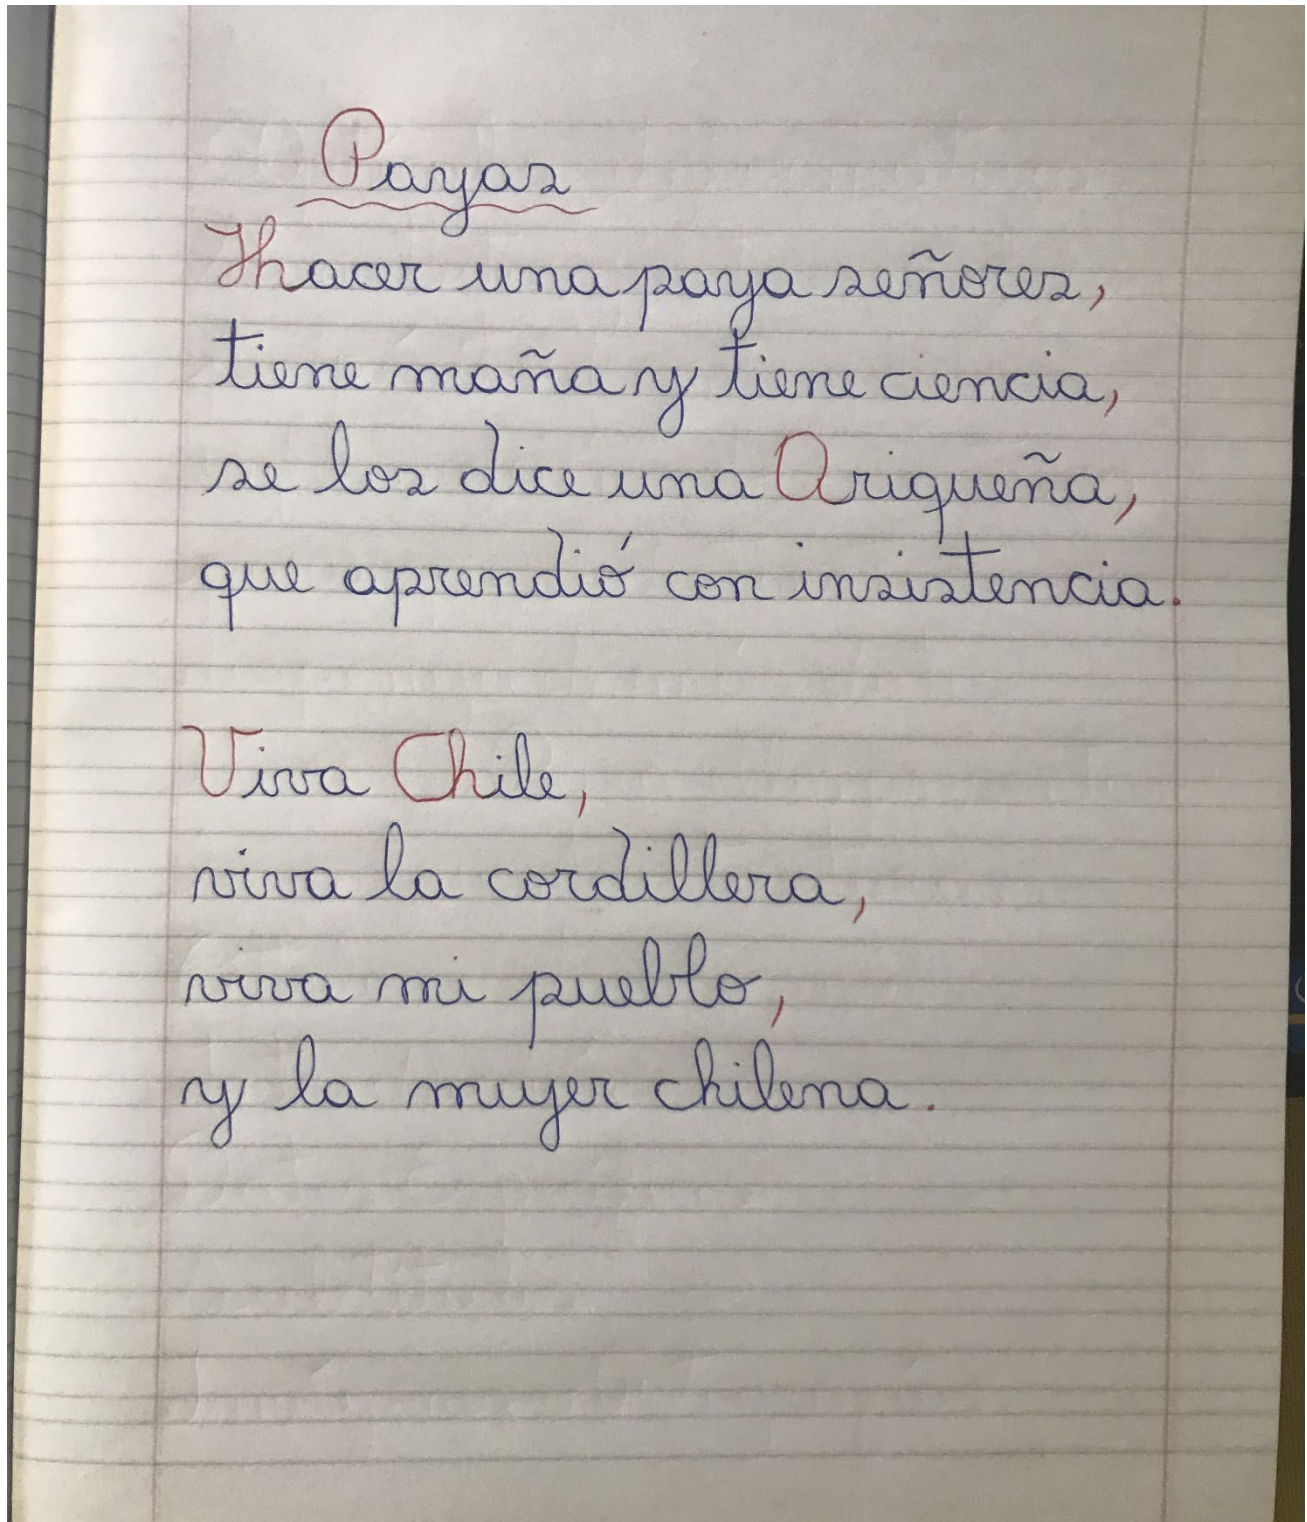 Payas
Hacer una paya señores,
tiene maña y tiene ciencia,
se los dice una Ariqueña,
que aprendió con insistencia.
Viva Chile,
viva la cordillera,
viva mi pueblo,
y la mujer chilena.